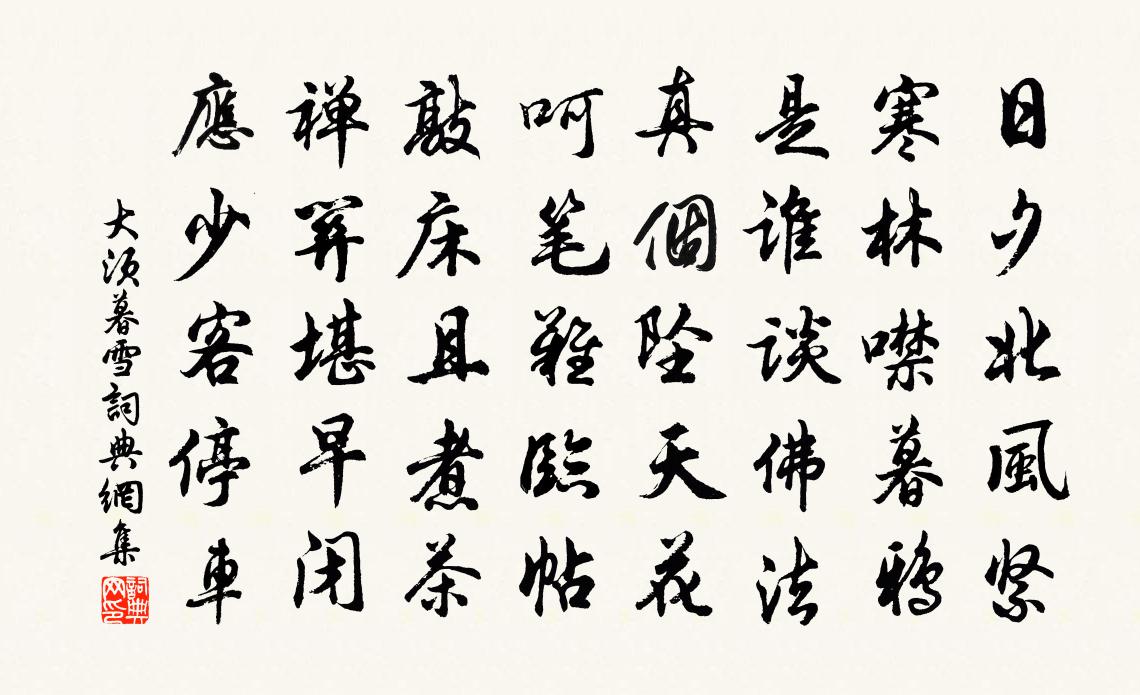 日夕北風紧
寒林噤暮鴉
是谁谈佛法
真個坠天花
呵笔難臨帖
敲床且煮茶
禅關堪早闭
應少客停車
大须暮雪詞典網集
詞典网印